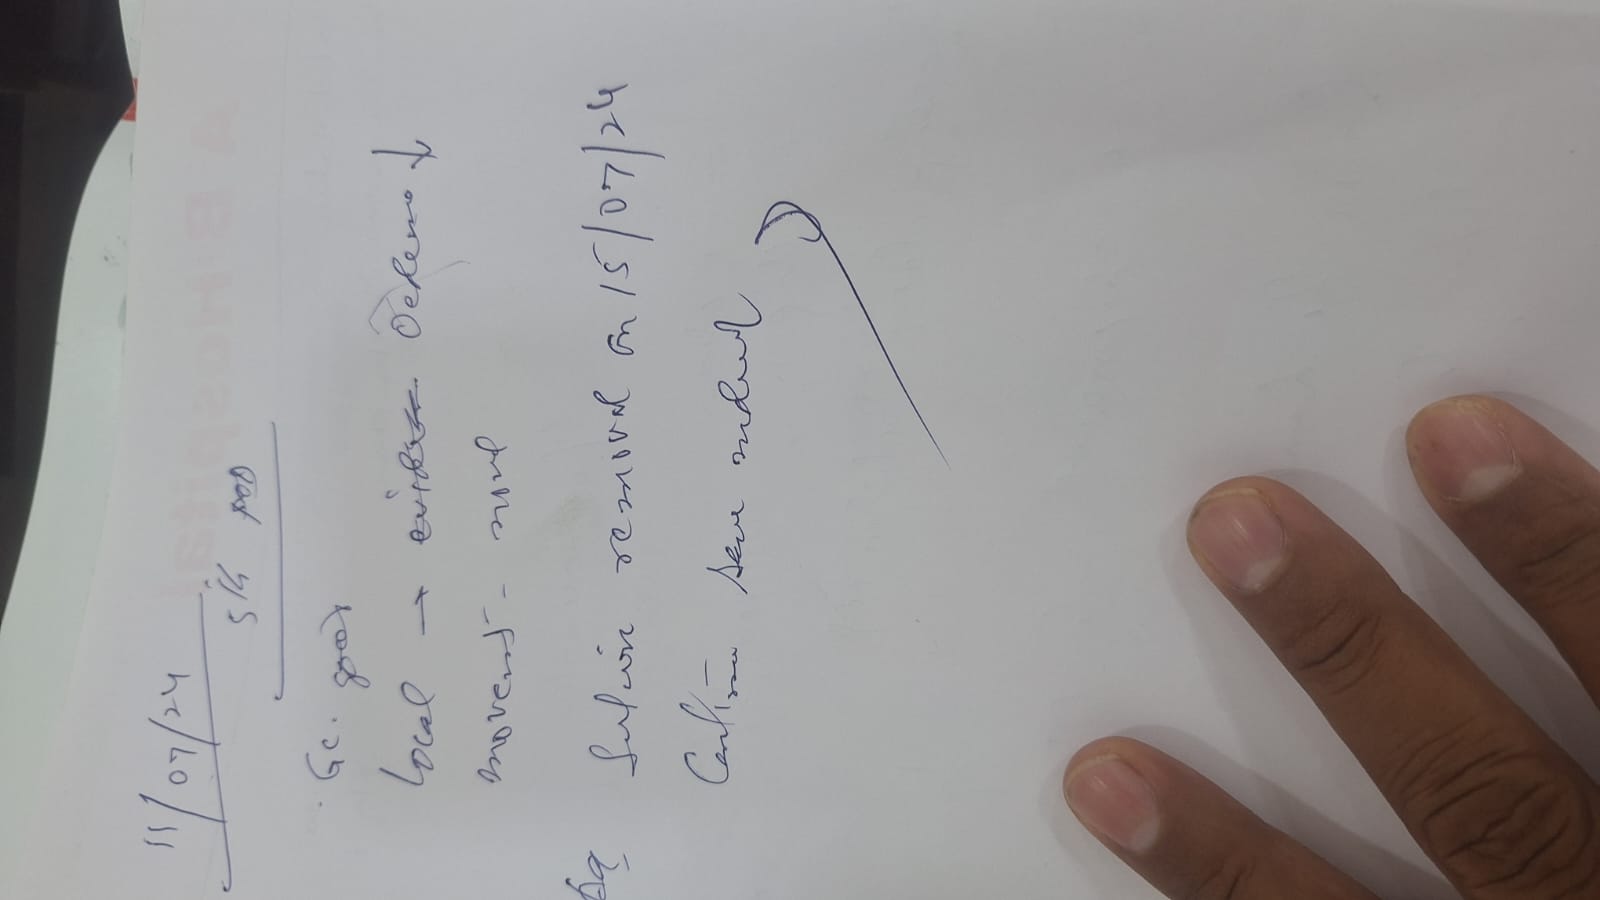 11/07/24
5th POD
G.C. good
Local → Oedema ↓
movement -
Adv
Suture removal on 15/07/24
Continue same